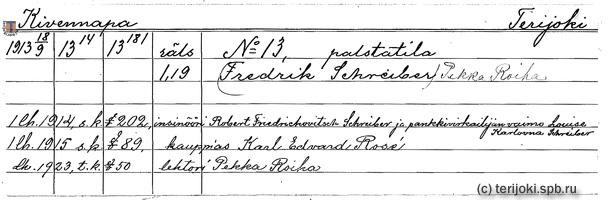 Kivennapa Terijoki
1913 18/9 13 14 13 181 räls No 13, palstatila
1,19 (Fredrik Schreiber) Pekka Roiha
1 lh. 1914, s.k. § 202, insinööri Robert Friedrichovitsch Schreiber ja pankkivirkailijan vaimo Louise
Karlovna Schreiber
1 lh. 1915 s.k. § 89, kauppias Karl Edvard Rosé
lk. 1923, t.k. § 50 lehtori Pekka Roiha
(c) terijoki.spb.ru